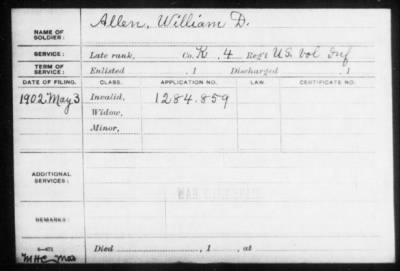 NAME OF SOLDIER: Allen, William D.
SERVICE: Late rank, Co. K, 4 Reg't U.S. Vol Inf
TERM OF SERVICE: Enlisted , 1 Discharged , 1
DATE OF FILING. CLASS. APPLICATION NO. LAW. CERTIFICATE NO.
1902 May 3 Invalid, 1284.859
Widow,
Minor,
ADDITIONAL SERVICES:
REMARKS:
Died , 1 , at